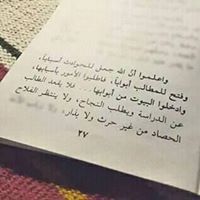 واعلموا أنّ الله جعل للحوادث أسباباً،
وفتح للمطالب أبواباً، فاطلبوا الأمور بأسبابها،
وادخلوا البيوت من أبوابها... فلا يقعد الطالب
عن الدراسة ويطلب النجاح، ولا ينتظر الفلاح
الحصاد من غير حرث ولا بذار.
٢٧